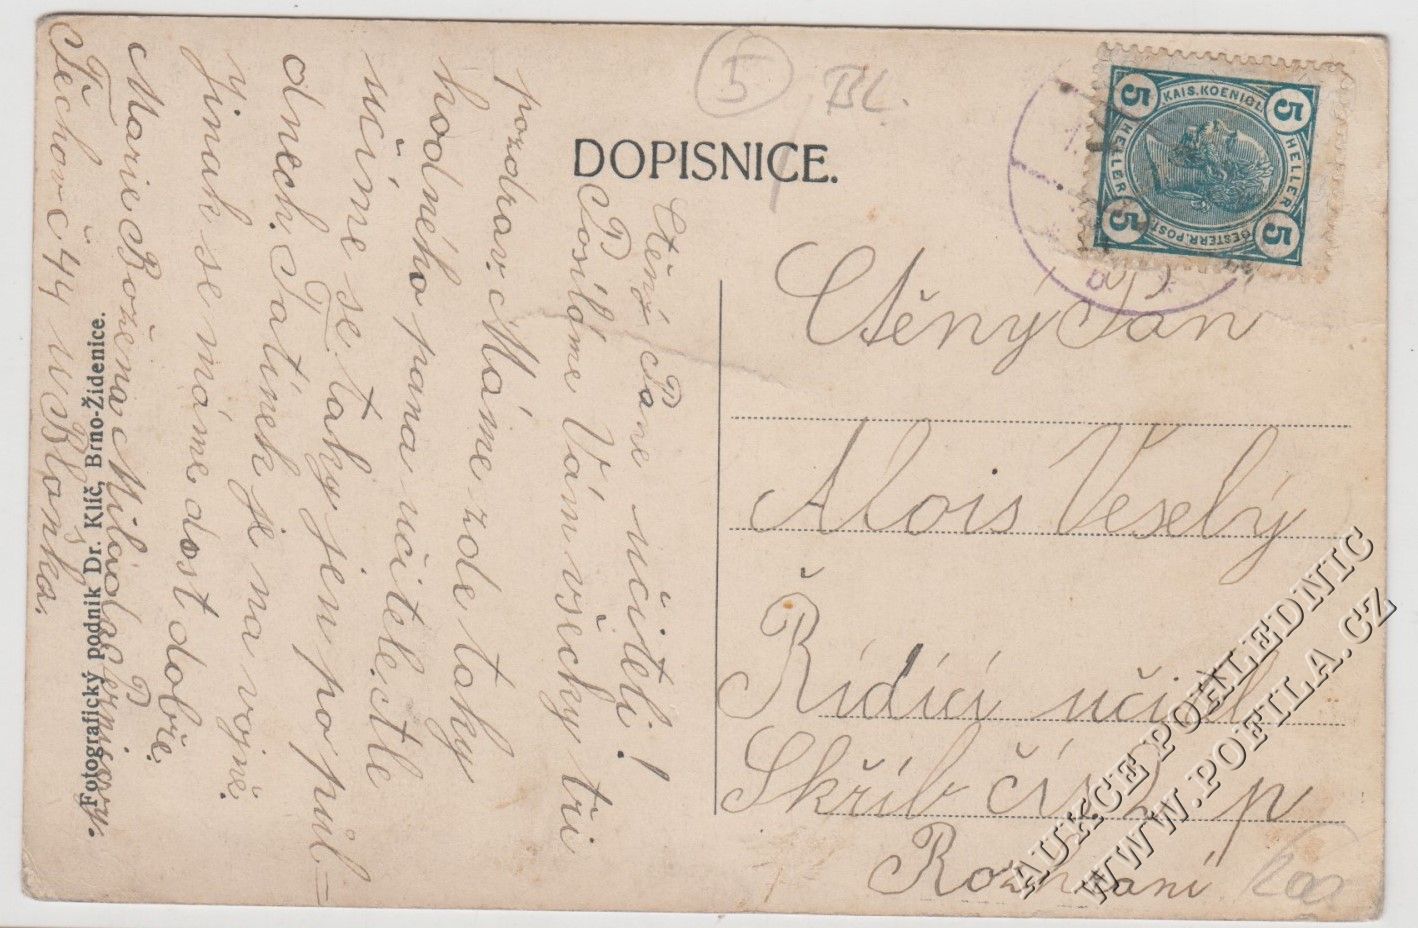 5
BL.
DOPISNICE.
KAIS. KOENIGL.
OESTERR. POST
HELLER
HELLER
5
5
5
5
Ctěný Pan
Alois Veselý
Řídící učitel
Skříb čís 2 p
Ctěný Pane učiteli!
Posíláme Vám všecky tři
pozdrav. Máme zde taky
hodného pana učitele. tle
učíme se taky jen po půl=
dnech. Tatínek je na vojně.
Jinak se máme dost dobře.
Marie Božena Milada
Těchov č 44 u Blanska.
Fotografický podnik Dr. Klíč, Brno-Židenice.
AUKCE POHLEDNIC
WWW.POFILA.CZ